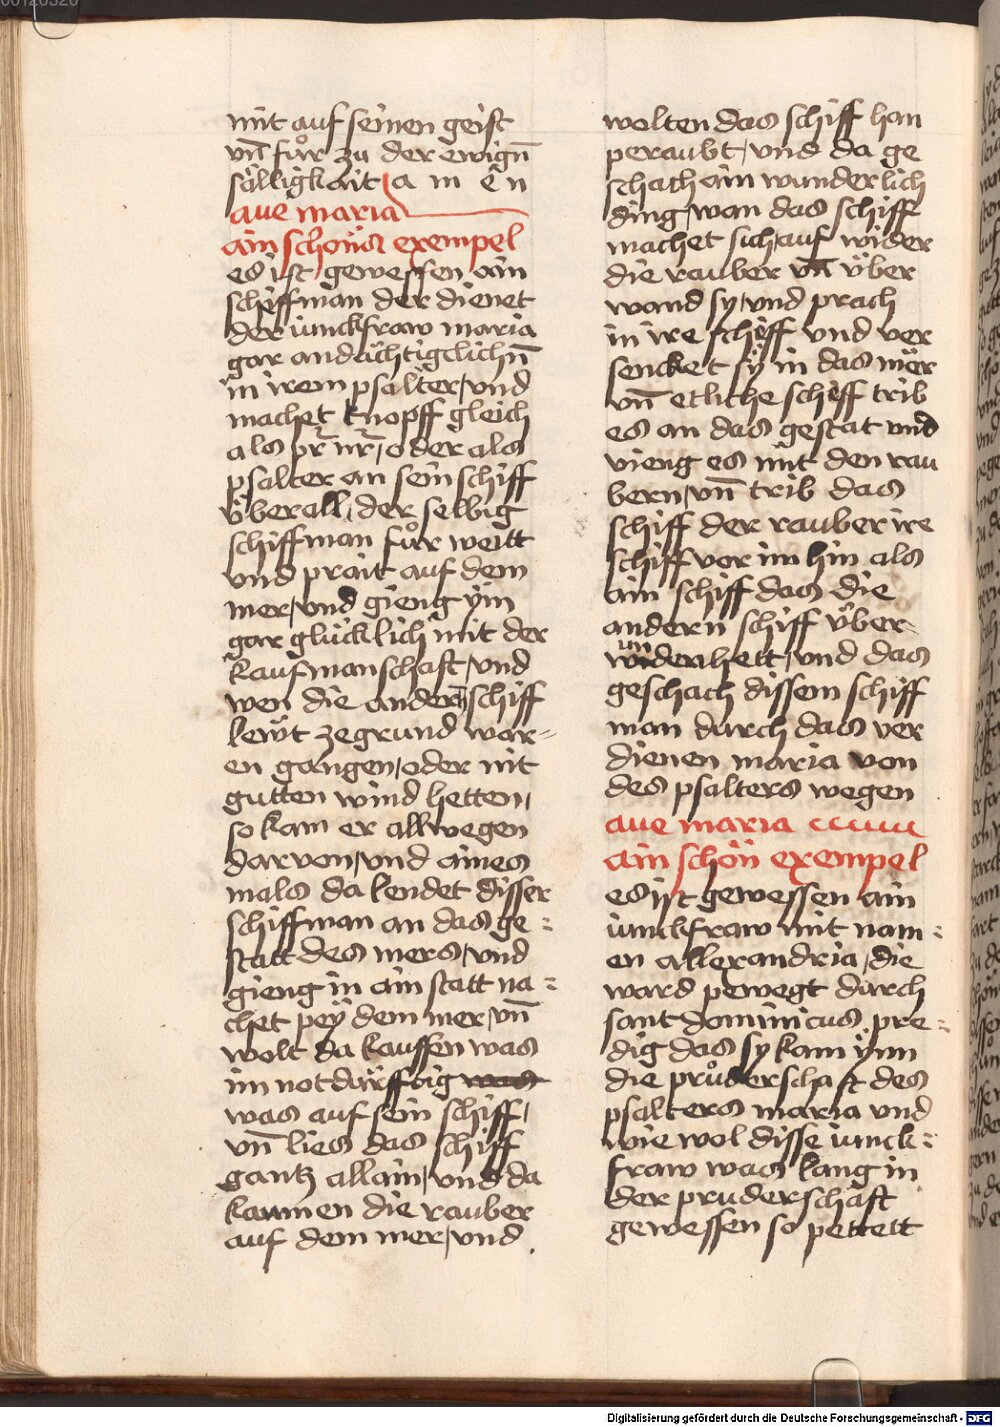 mit auf seinen geist
vn̄ fůr zu der ewign̄
sälligkait a m e n
aue maria
ain schöns exempel
es ist gewessen ain
schiffman der dienet
der iunckfraw maria
gar andächtigelichn̄
in irem psalter, vnd
machet knopff gleich
als pr̄ nr̄, oder als
psalter an sein schiff
v̈berall, der selbig
schiffman fůr weitt
vnd prait auf dem
mer, vnd gieng ÿm
gar glücklich mit der
kaufmanschaft, vnd
wen die andern schiff
lewt ze grund war=
en gangen, oder nit
gutten wind hetten,
so kam er allwegen
darvon, vnd aines
mals da lendet disser
schiffman an das ge=
statt des mers, vnd
gieng in ain statt na=
chet peÿ dem mer, vn̄
wolt da kauffen was
im notdürfftig was
was auf sein schiff,
vn̄ lies das schiff
gantz allain, vnd da
kammen die rauber
auf dem mer, vnd
wolten das schiff han
peraubt, vnd da ge
schach ain wunderlich
ding, wan das schiff
machet sich auf wider
die rauber vn̄ v̈ber
wand sy, vnd prach
in ire schiff vnd ver
sencket sÿ in das mër
vn̄ etliche schiff trib
es an das gestat vnd
vieng es mit den rau
bern, vn̄ trib das
schiff der rauber ire
schiff vor im hin als
ain schiff das die
andern schiff v̈ber
wunden hett, vnd das
geschach dissem schiff
man durch das ver
dienen maria von
des psalters wegen
aue maria
ain schön exempel
es ist gewessen ain
iunckfraw mit nam=
en allexandria, die
ward pewegt durch
sant dominicus pre=
dig das sy kam ÿnn
die průderschaft des
psalters maria vnd
wie wol disse iunck=
fraw was lang in
der pruderschaft
gewessen so pettett
Digitalisierung gefördert durch die Deutsche Forschungsgemeinschaft - DFG